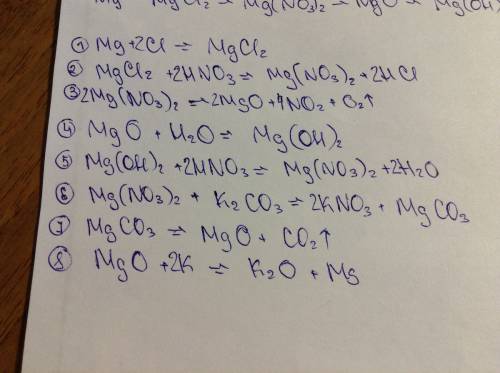 Mg MgCl₂ = Mg(NO₃)₂ = MgO = Mg(OH)
① Mg+2Cl = MgCl₂
② MgCl₂ +2HNO₃ = Mg(NO₃)₂+2HCl
③ 2Mg(NO₃)₂ = 2MgO+4NO₂+O₂↑
④ MgO + H₂O = Mg(OH)₂
⑤ Mg(OH)₂ +2HNO₃ = Mg(NO₃)₂+2H₂O
⑥ Mg(NO₃)₂ + K₂CO₃ = 2KNO₃ + MgCO₃
⑦ MgCO₃ = MgO + CO₂↑
⑧ MgO +2K = K₂O + Mg